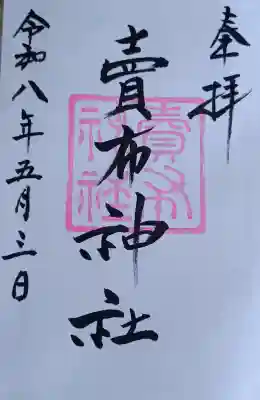 奉拝
賣布神社
賣布神社
令和八年五月三日